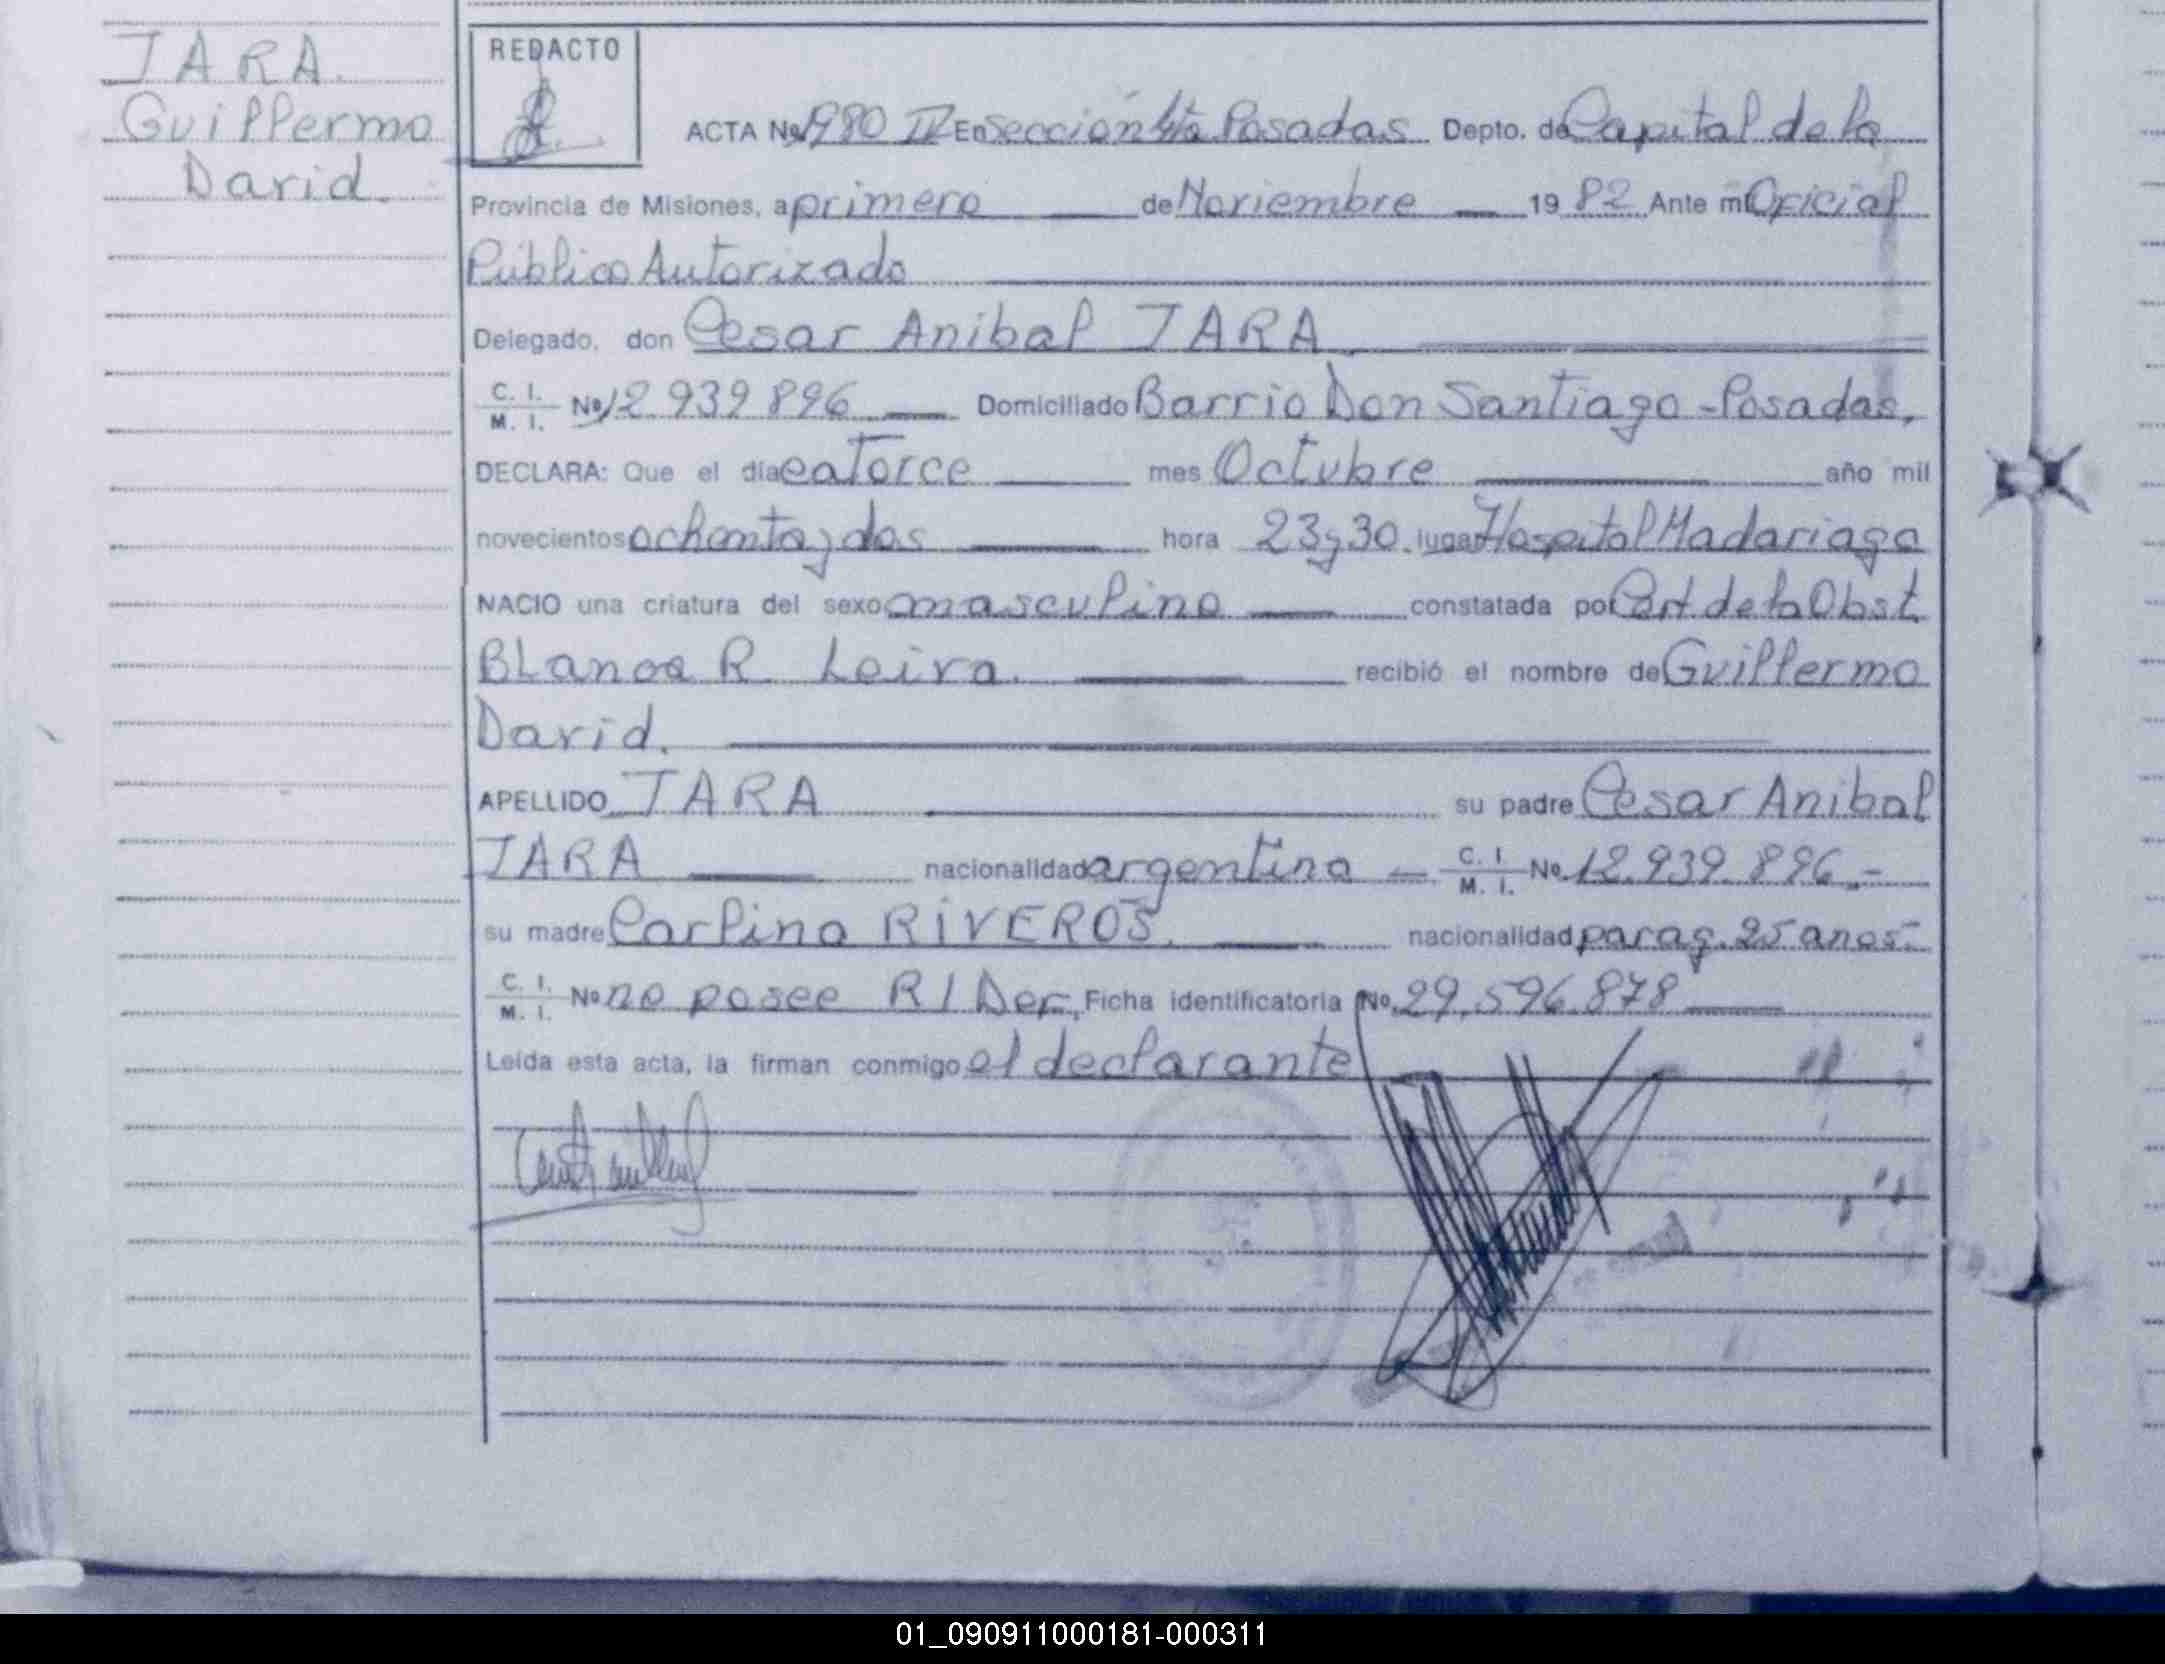 JARA.
Guillermo
David.
REDACTO
ACTA Nº 1980 IV En Sección 4ta Posadas Depto. de Capital de la
Provincia de Misiones, a primero de Noviembre 1982 Ante mí Oficial
Público Autorizado
Delegado, don Cesar Anibal JARA
C. I.
M. I. Nº 12 939 896 Domiciliado Barrio Don Santiago - Posadas,
DECLARA: Que el día catorce mes Octubre año mil
novecientos ochenta y dos hora 23 y 30. lugar Hospital Madariaga
NACIO una criatura del sexo masculino constatada por Cert. de la Obst.
Blanca R. Leiva. recibió el nombre de Guillermo
David.
APELLIDO JARA su padre Cesar Anibal
JARA nacionalidad argentina C. I.
M. I. Nº 12.939.896.-
su madre Carlina RIVEROS. nacionalidad parag. 25 anos-
C. I.
M. I. Nº no posee R/Der, Ficha identificatoria Nº 29.596.878
Leída esta acta, la firman conmigo el declarante
01_090911000181-000311